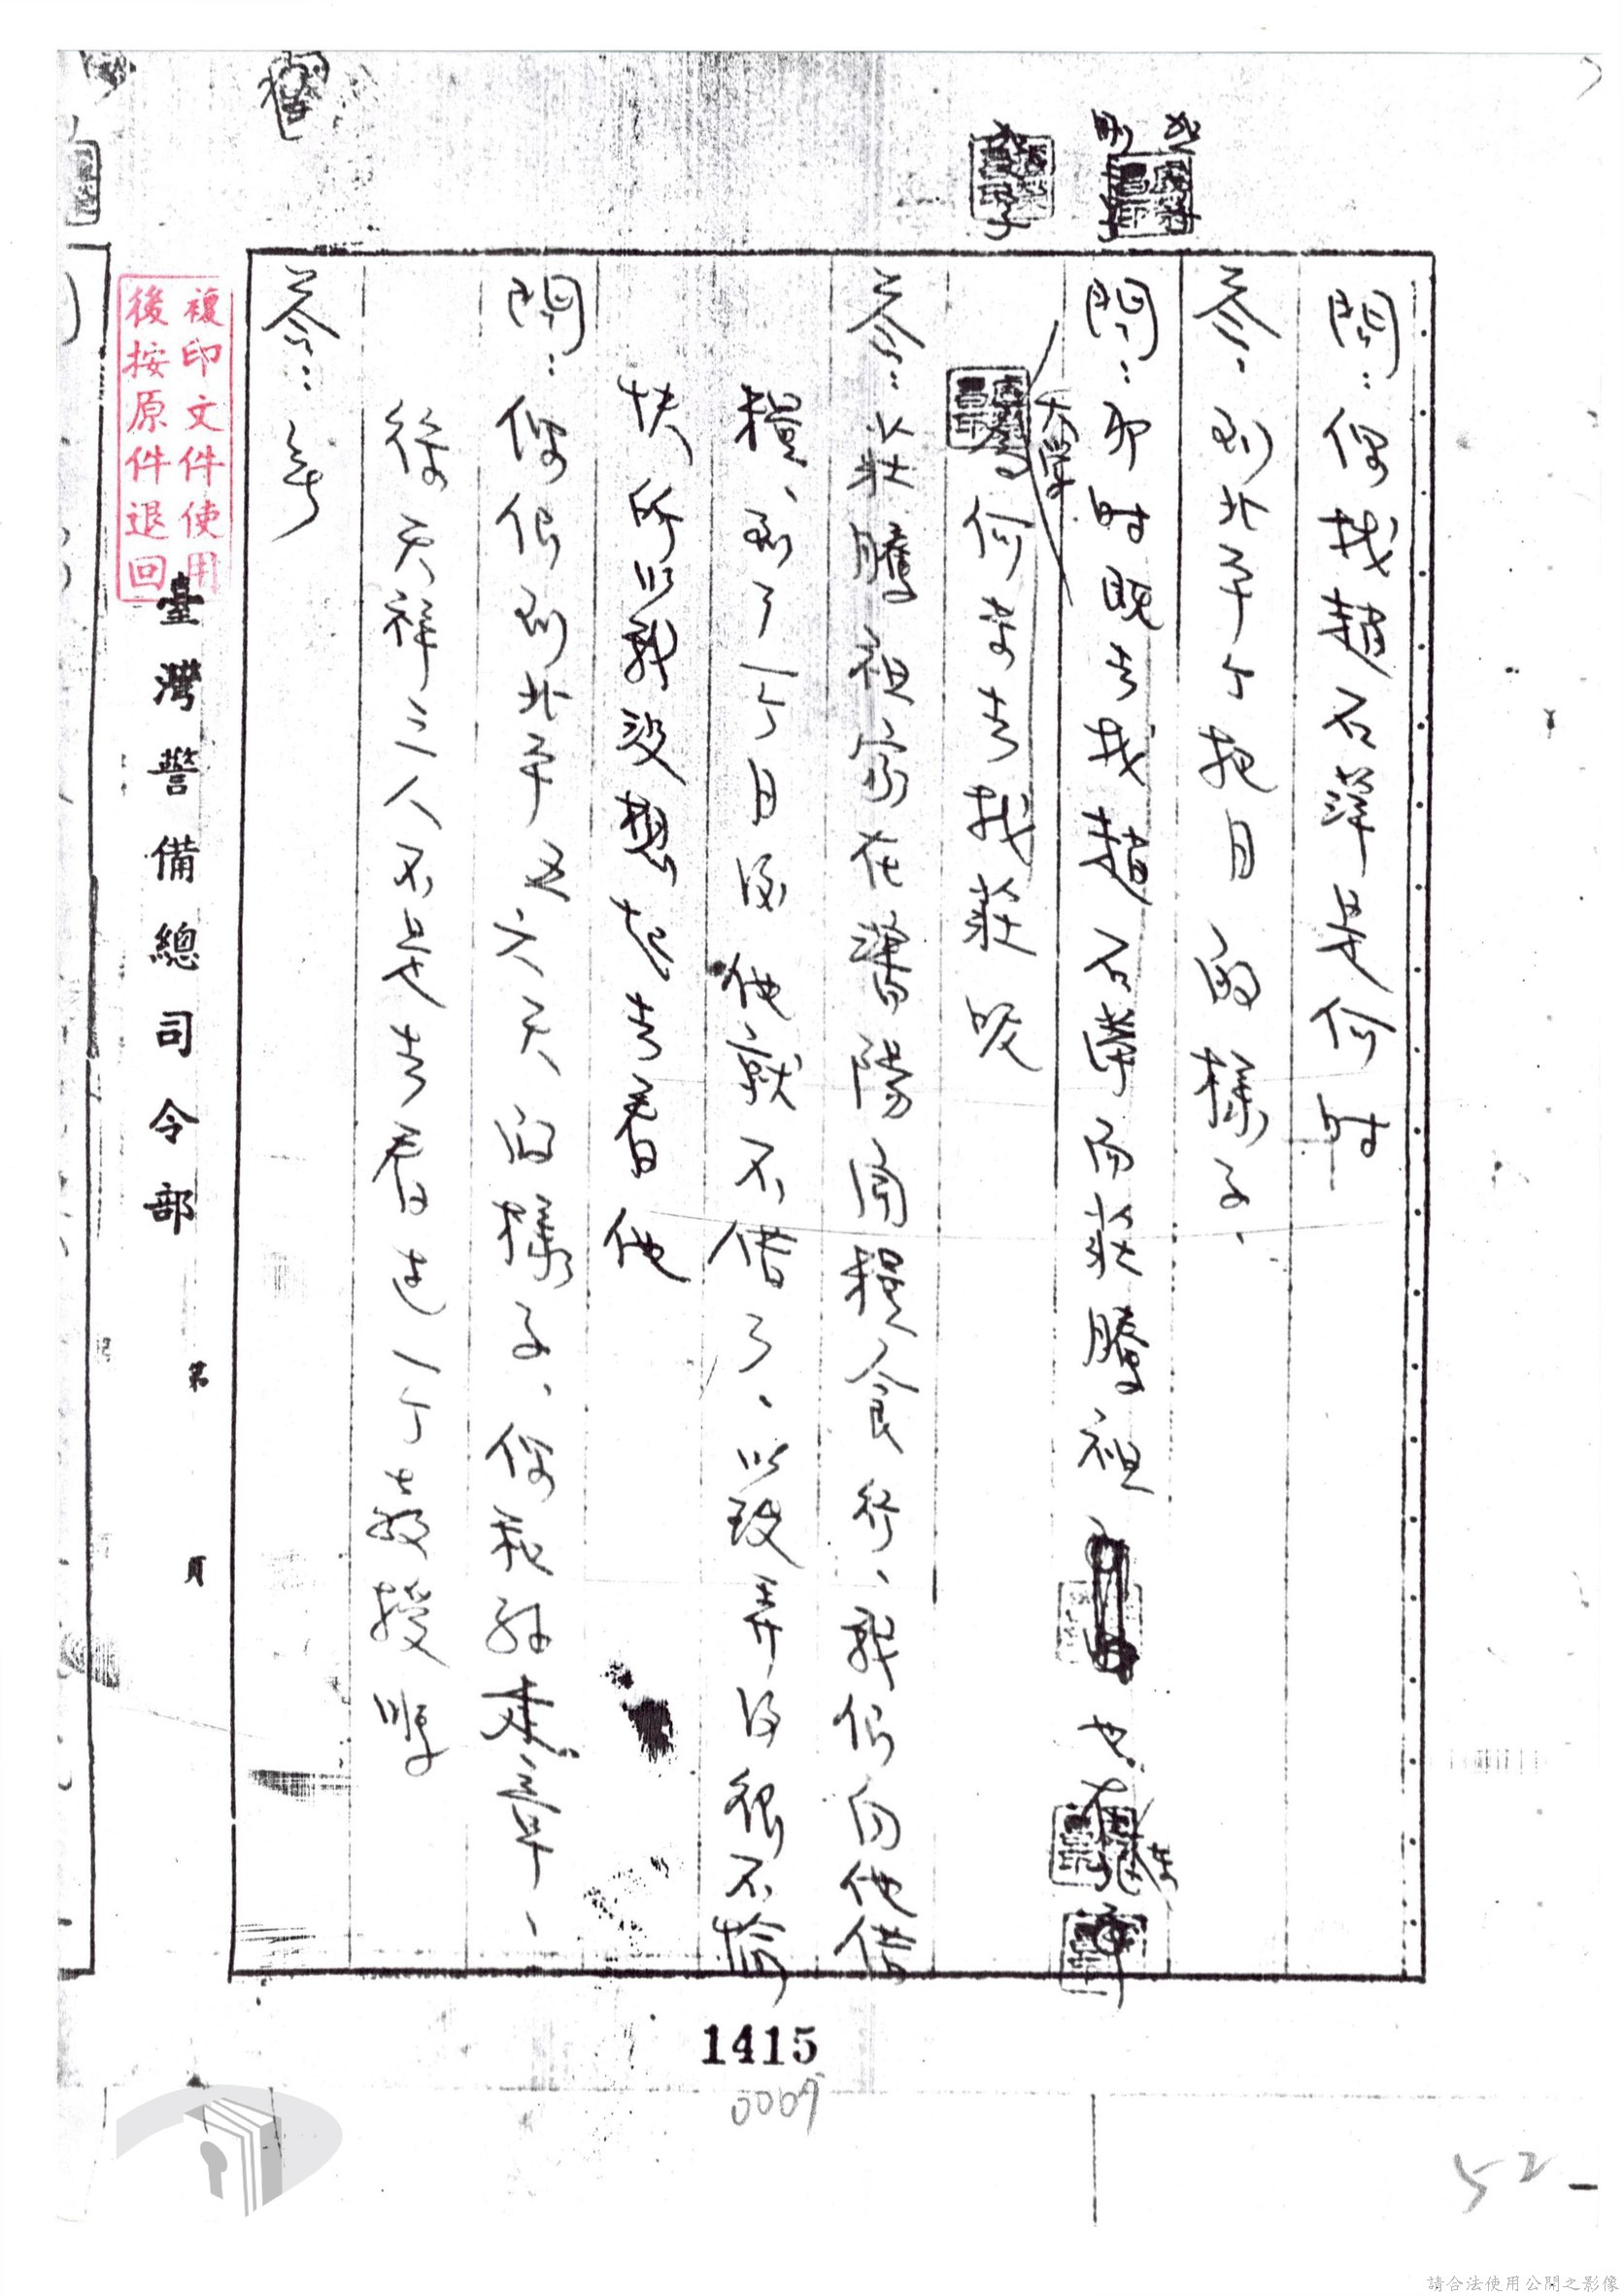 問：你找趙石萍是何時
答：到北平个把月的樣子、
問：那時既去找趙石萍而莊騰祖也在
大學
何或去找莊呢
答：以莊騰祖家在瀋陽開糧食行、我們向他借
糧、到了一个月後他就不借了、以致弄得很不愉
快所以我沒想起去看他
問：你們到北平五六天的樣子、你和孫建章、
徐天祥三人不是去看过一个女教授嗎
答：無
臺灣警備總司令部
第 頁
複印文件使用
後按原件退回
1415
0007
52
請合法使用公開之影像